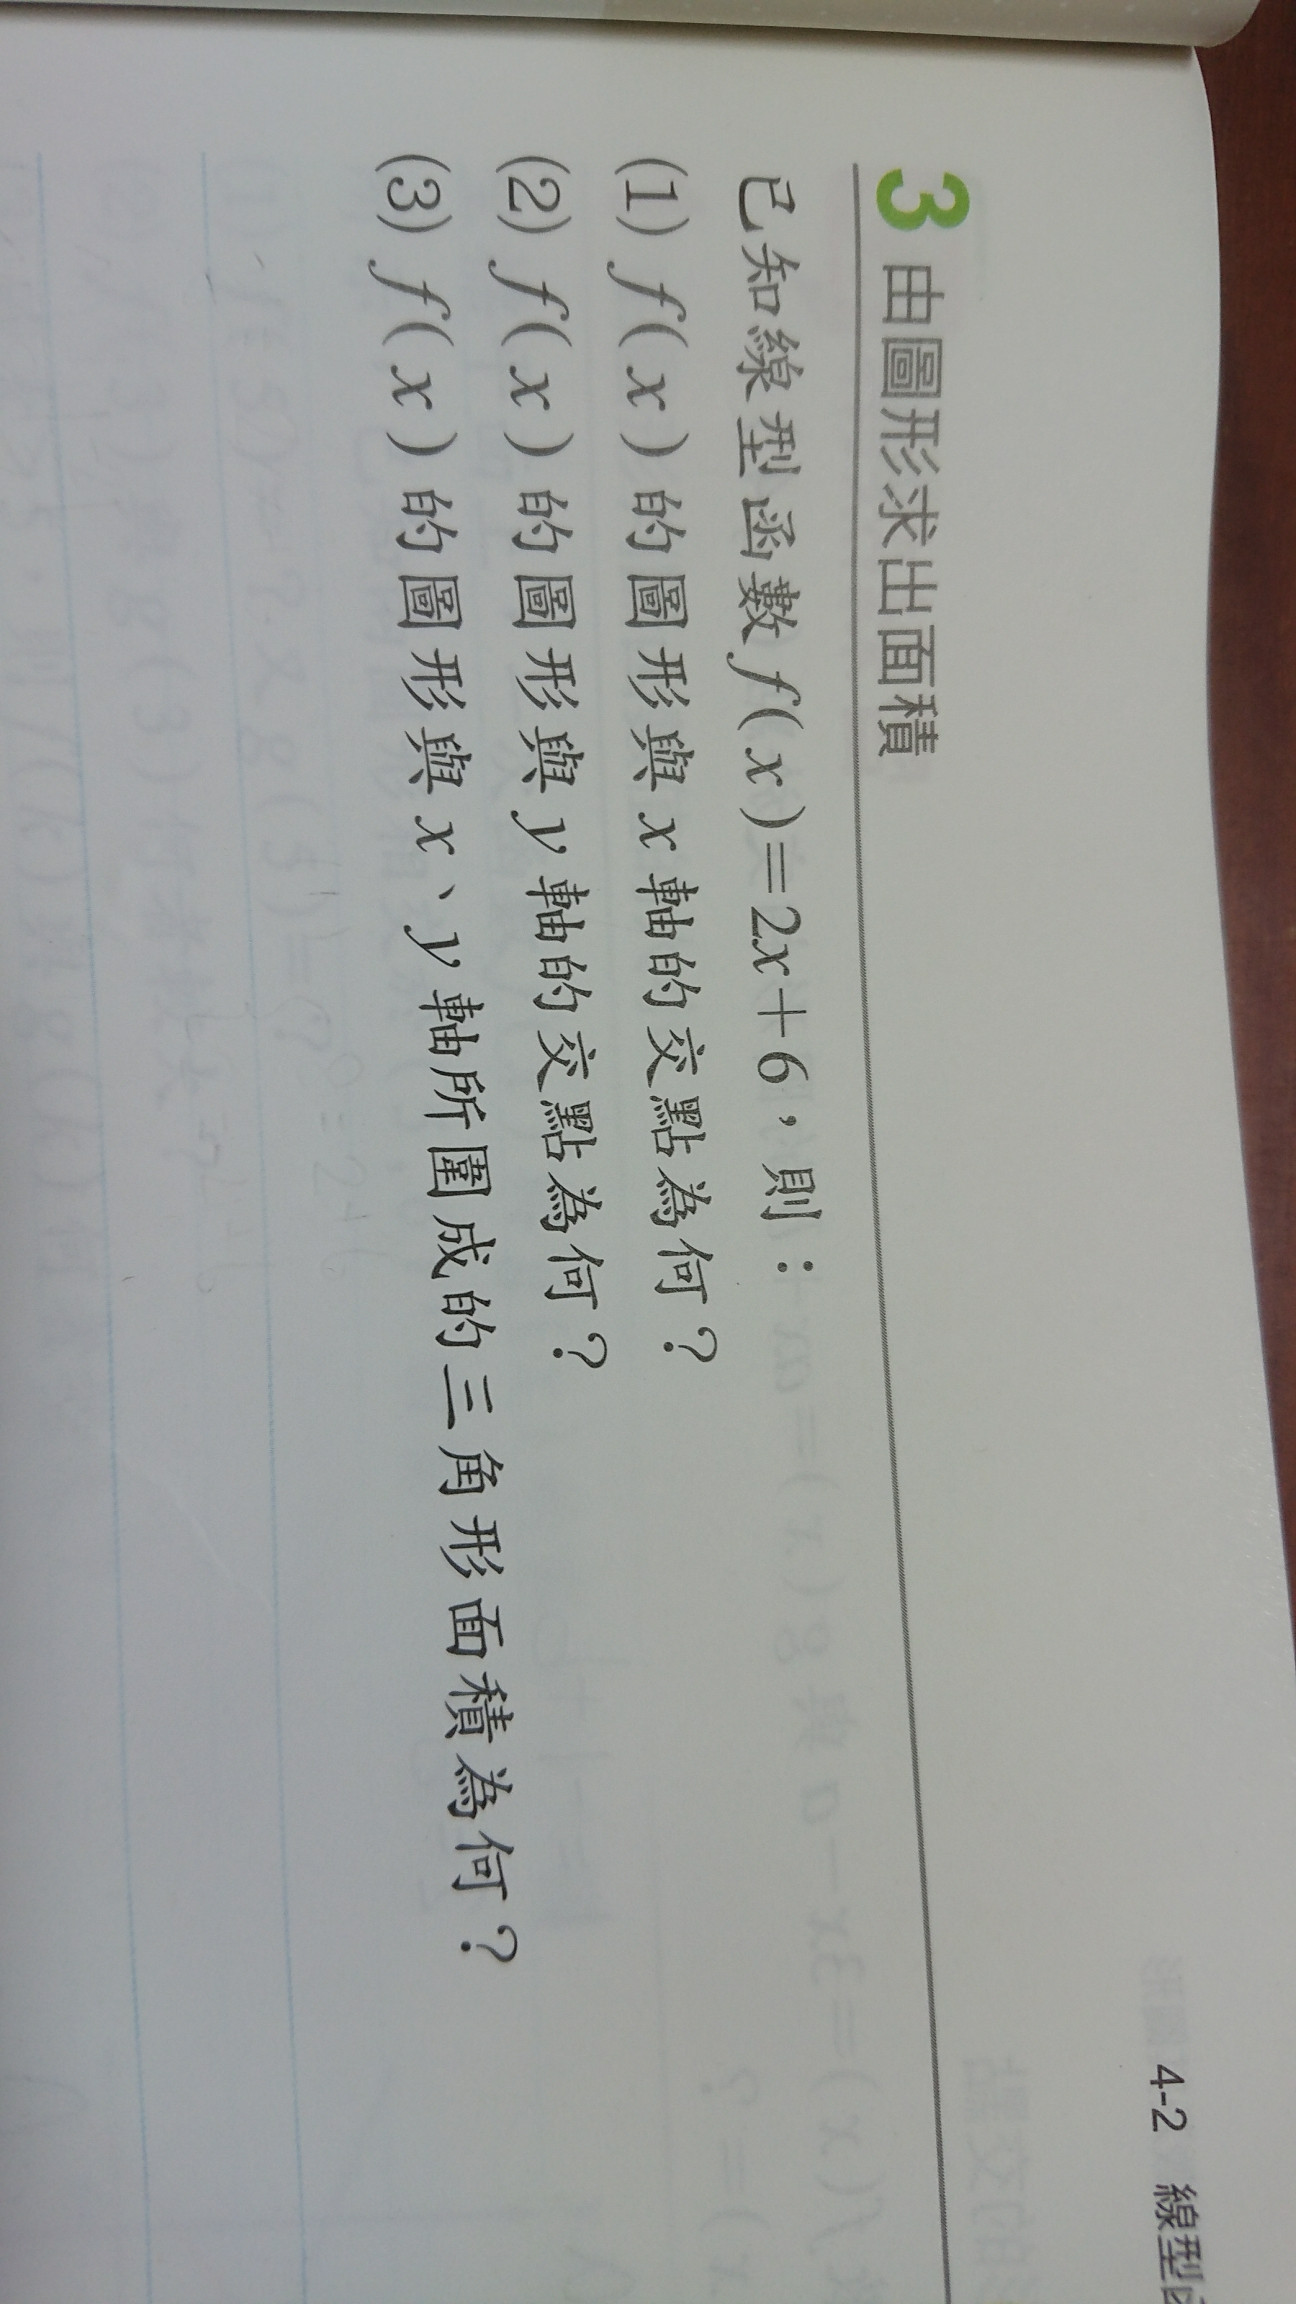 4-2 線型
3 由圖形求出面積
已知線型函數f(x)=2x+6，則：
(1) f(x)的圖形與x軸的交點為何？
(2) f(x)的圖形與y軸的交點為何？
(3) f(x)的圖形與x、y軸所圍成的三角形面積為何？